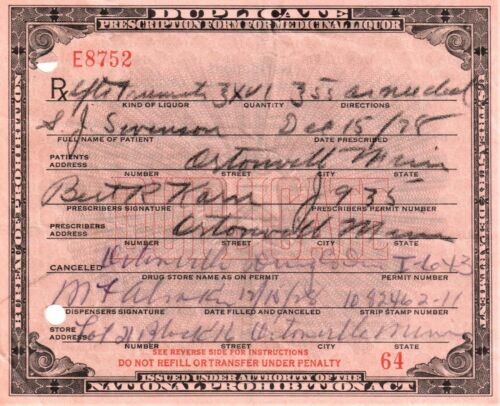 DUPLICATE
PRESCRIPTION FORM FOR MEDICINAL LIQUOR
E8752
Rx Spts Frumenti 3XVI as needed
KIND OF LIQUOR QUANTITY DIRECTIONS
S J Swenson Dec 15/28
FULL NAME OF PATIENT DATE PRESCRIBED
PATIENTS ADDRESS Ortonvill Minn
NUMBER STREET CITY STATE
Karn J935
PRESCRIBERS SIGNATURE PRESCRIBERS PERMIT NUMBER
PRESCRIBERS ADDRESS Ortonvill Minn
NUMBER STREET CITY STATE
CANCELED Ortonville Drug Co
DRUG STORE NAME AS ON PERMIT PERMIT NUMBER
12/15/28 1092462-11
DISPENSERS SIGNATURE DATE FILLED AND CANCELED STRIP STAMP NUMBER
STORE ADDRESS Lot 21 Block 11 Ortonville Minn
NUMBER STREET CITY STATE
SEE REVERSE SIDE FOR INSTRUCTIONS
DO NOT REFILL OR TRANSFER UNDER PENALTY
64
ISSUED UNDER AUTHORITY OF THE
NATIONAL PROHIBITION ACT